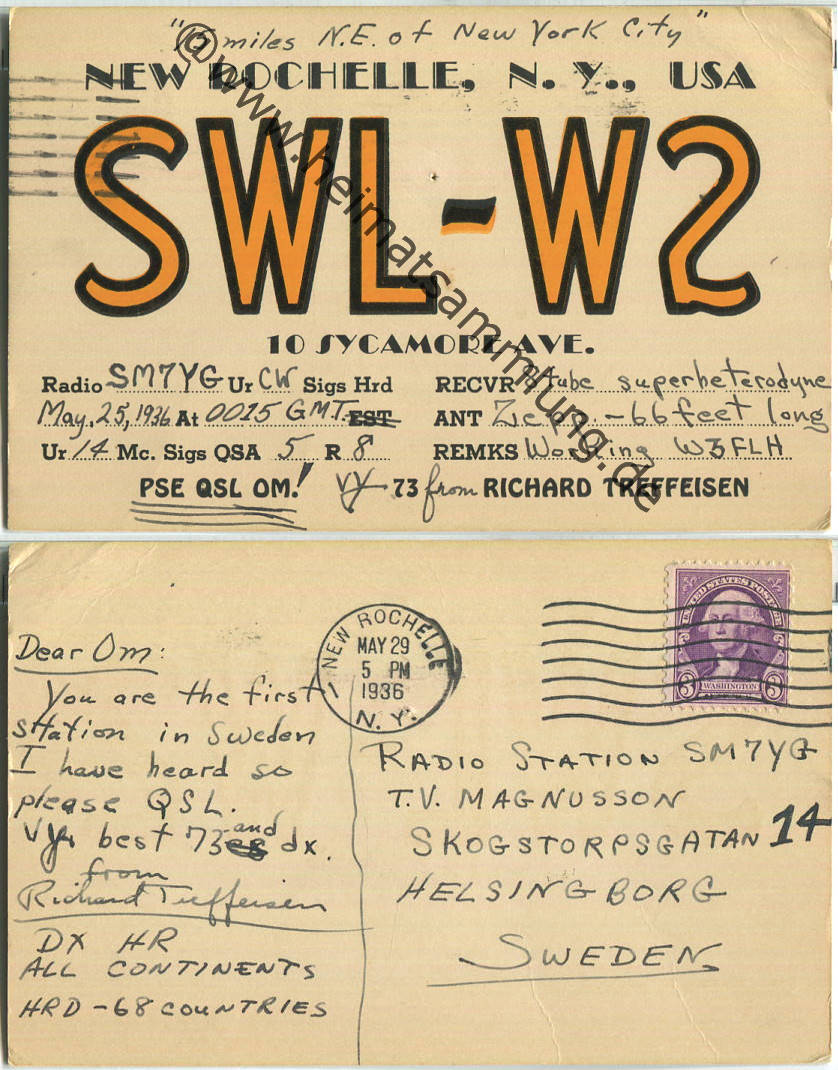 "15 miles N.E. of New York City"
NEW ROCHELLE, N. Y., USA
SWL-W2
10 SYCAMORE AVE.
Radio SM7YG Ur CW Sigs Hrd
May. 25, 1936 At 0015 GMT. EST
Ur 14 Mc. Sigs QSA 5 R 8
PSE QSL OM.!
RECVR tube superheterodyne
ANT Zepp. - 66 feet long
REMKS Working W3FLH
vy 73 from RICHARD TREFFEISEN
@www.heimatsammlung.de
Dear Om:
You are the first
station in Sweden
I have heard so
please QSL.
Vy best 73 and dx.
from
Richard Treffeisen
DX HR
ALL CONTINENTS
HRD - 68 COUNTRIES
NEW ROCHELLE
MAY 29
5 PM
1936
N. Y.
UNITED STATES POSTAGE
3 WASHINGTON 3
RADIO STATION SM7YG
T.V. MAGNUSSON
SKOGSTORPSGATAN 14
HELSINGBORG
SWEDEN